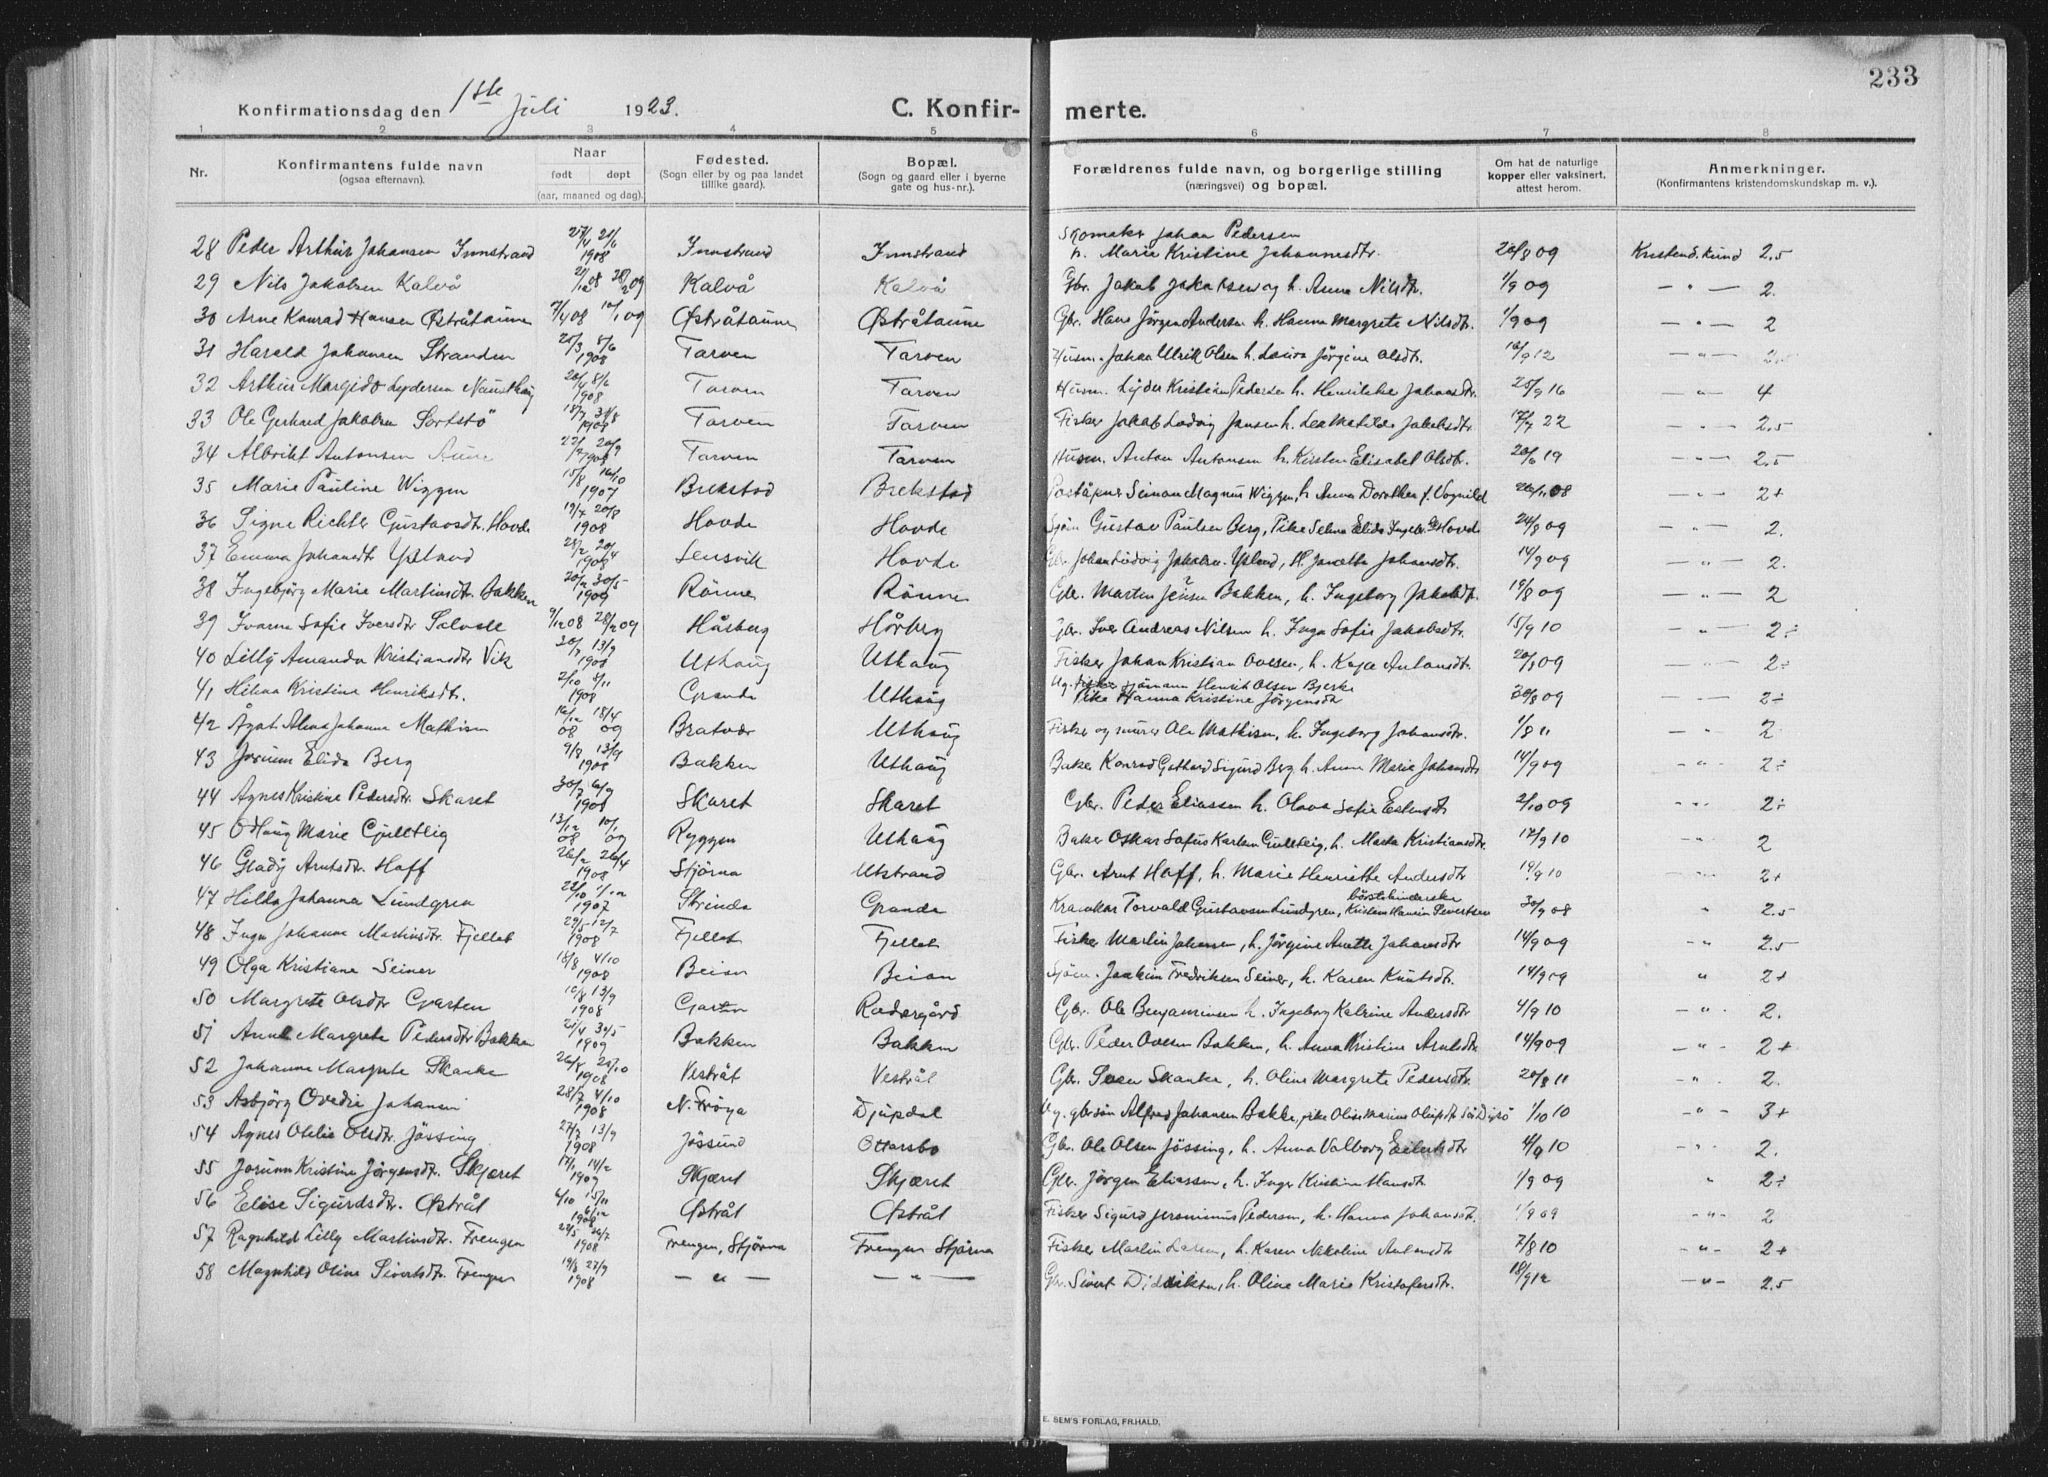 233
Konfirmationsdag den 1ste Juli 1923. C. Konfir- merte.
1 2 3 4 5 6 7 8
Nr. Konfirmantens fulde navn (ogsaa efternavn). Naar født døpt (aar, maaned og dag). Fødested. (Sogn eller by og paa landet tillike gaard). Bopæl. (Sogn og gaard eller i byerne gate og hus-nr.). Forældrenes fulde navn, og borgerlige stilling (næringsvei) og bopæl. Om hat de naturlige kopper eller vaksinert, attest herom. Anmerkninger. (Konfirmantens kristendomskundskap m. v.).
28 Peder Arthur Johansen Innstrand 27/4 21/6 1908 Innstrand Innstrand Skomaker Johan Pedersen h. Marie Kristine Johannesdtr. 20/8 09 Kristend.kund 2.5
29 Nils Jakobsen Kalvå 21/12 08 28/2 09 Kalvå Kalvå Gbr. Jakob Jakobsen og h. Anna Nilsdtr. 1/9 09 — " — 2.
30 Arne Konrad Hansen Østråtaune 7/4 08 10/1 09 Østråtaune Østråtaune Gbr. Hans Jørgen Andersen h. Hanna Margrete Nilsdtr. 1/9 09 — " — 2
31 Harald Johansen Stranden 21/3 8/6 1908 Tarven Tarven Husm. Johan Ulrik Olsen h. Lovisa Jörgine Olsdtr. 10/9 12 — " — 2.5
32 Arthur Margido Lydersen Nausthaug 20/4 8/6 1908 Tarven Tarven Husm. Lyder Kristian Pedersen h. Henrikke Johansdtr. 25/9 16 — " — 4
33 Ole Gerhard Jakobsen Sortstö 18/7 31/8 1908 Tarven Tarven Fisker Jakob Ludvig Jansen h. Lea Matilde Jakobsdtr 17/7 22 — " — 2.5
34 Albrikt Antonsen Aune 1908 Tarven Tarven Husm. Anton Antonsen h. Kirsten Elisabet Olsdtr. 20/6 19 — " — 2.5
35 Marie Pauline Wiggen 15/8 16/10 1907 Brekstad Brekstad Poståpner Simon Magnus Wiggen, h. Anna Dorothea f. Vognild 26/11 08 — " — 2+
36 Signe Richter Gustavsdtr. Hovde 19/7 20/8 1908 Hovde Hovde Sjöm Gustav Paulsen Berg, Pike Selma Elida 24/8 09 — " — 2.
37 Emma Johansdtr Ysland 28/2 20/4 1908 Lensvik Hovde Gbr. Johan Ludvig Jakobsen Ysland, H. Janetta Johansdtr. 14/9 09 — " — 2.
38 Ingebjörg Marie Martinsdtr. Bakken 20/2 30/5 1909 Rönne Rönne Gbr. Martin Jensen ? Bakken, h. Ingeborg Jakobsdtr. 19/8 09 — " — 2
39 Ivarna Sofie Iversdtr 9/12 08 28/2 09 Hårberg Hårberg Gbr. Iver Andreas Nilsen h. Inga Sofie Jakobsdtr. 15/9 10 — " — 2÷
40 Lilly Amanda Kristiansdtr Vik 20/7 13/9 1908 Uthaug Uthaug Fisker Johan Kristian Ovesen, h. Kaja Antonsdtr. 09 — " — 2÷
41 Hilma Kristine Henriksdtr. 2/10 8/11 1908 Grande Uthaug Ug. sjömann Henrik Olsen Bjerke Pike Hanna Kristine Jörgensdtr 30/8 09 — " — 2÷
42 Ågot Alma Johanne Mathisen 16/12 08 18/4 09 Bratvær Uthaug Fisker og murer Ole Mathisen, h. Ingeborg Johansdtr. 1/8 11 — " — 2
43 Jorunn Elida Berg 9/8 13/9 1908 Bakken Uthaug Baker Konrad Gothard Sigurd Berg h. Anne Marie Johansdtr 14/9 09 — " — 2÷
44 Agnes Kristine Pedersdtr. Skaret 30/7 6/9 1908 Skaret Skaret Gbr. Peder Eliassen h. Olava Sofie Estensdtr 2/10 09 — " — 2÷
45 Odlaug Marie Gullteig 13/12 08 10/1 09 Ryggen Uthaug Baker Oskar Sofus Karlsen Gullteig, h. Marta Kristiansdtr. 17/9 10 " 2
46 Glady Arntsdtr. Hoff 26/2 26/4 1908 Stjørna Utstrand Gbr. Arnt Hoff, h. Marie Henriette Andersdtr 19/9 10 — " — 2+
47 Hilda Johanna Lundgren 22/10 1/12 1907 Strinda Grande Kramkar Torvald Gustavsen Lundgren, börstebinderske 30/9 08 " 2.5
48 Inga Johanne Martinsdtr. Fjellet 29/5 12/7 1908 Fjellet Fjellet Fisker Martin Johansen, h. Jörgine Anette Johansdtr 14/9 09 — " — 2.5
49 Olga Kristiane Seiner 18/8 4/10 1908 Beian Beian Sjöm. Joakim Fredriksen Seiner, h. Karen Knutsdtr. 14/9 09 " 2+
50 Margrete Olsdtr Garten 10/8 13/9 1908 Garten Rædergård Gbr. Ole Benjaminsen h. Ingeborg Katrine Andersdtr 4/9 10 — " — 2.
51 Anna Margrete Pedersdtr Bakken 21/4 30/5 1909 Bakken Bakken Gbr. Peder Ovesen Bakken, h. Anna Kristine Arntsdtr 14/9 09 — " — 2+
52 Johanna Margrete Skanke 26/8 25/10 1908 Vestråt Vestråt Gbr. Peder Skanke, h. Oline Margrete Pedersdtr. 20/8 11 — " — 2.
53 Asbjörg Ovedie Johansen 28/7 4/10 1908 N. Frøya Djupdal Ug. gbrsön Alfred Johansen Bakke, pike Olise Marine 1/10 10 — " — 3+
54 Agnes Otelie Olsdtr. Jössing 27/7 13/9 1908 Jössund Ottersbo Gbr. Ole Olsen Jössing, h. Anna Valborg Eilertsdtr 4/9 10 — " — 2.
55 Jorunn Kristine Jörgensdtr. Skjæret 17/1 14/2 1909 Skjæret Skjæret Gbr. Jörgen Eliassen, h. Inger Kristine Hansdtr 1/9 09 " 2÷
56 Elise Sigurdsdtr. Østråt 4/10 15/11 1908 Østråt Østråt Fisker Sigurd Jeronimus Pedersen, h. Hanna Johansdtr. 1/9 09 — " — 2
57 Ragnhild Lilly Martinsdtr. Frengen 1908 Frengen, Stjørna Frengen Stjørna Fisker Martin Larsen, h. Karen Nikoline Antonsdtr 7/8 10 — " — 2+
58 Magnhild Oline Sivertsdtr. Frengen 19/8 27/9 1908 — " — — " — Gbr. Sivert Didriksen, h. Oline Marie Kristofersdtr. 18/9 12 — " — 2.5
E. SEM'S FORLAG, FR.HALD.